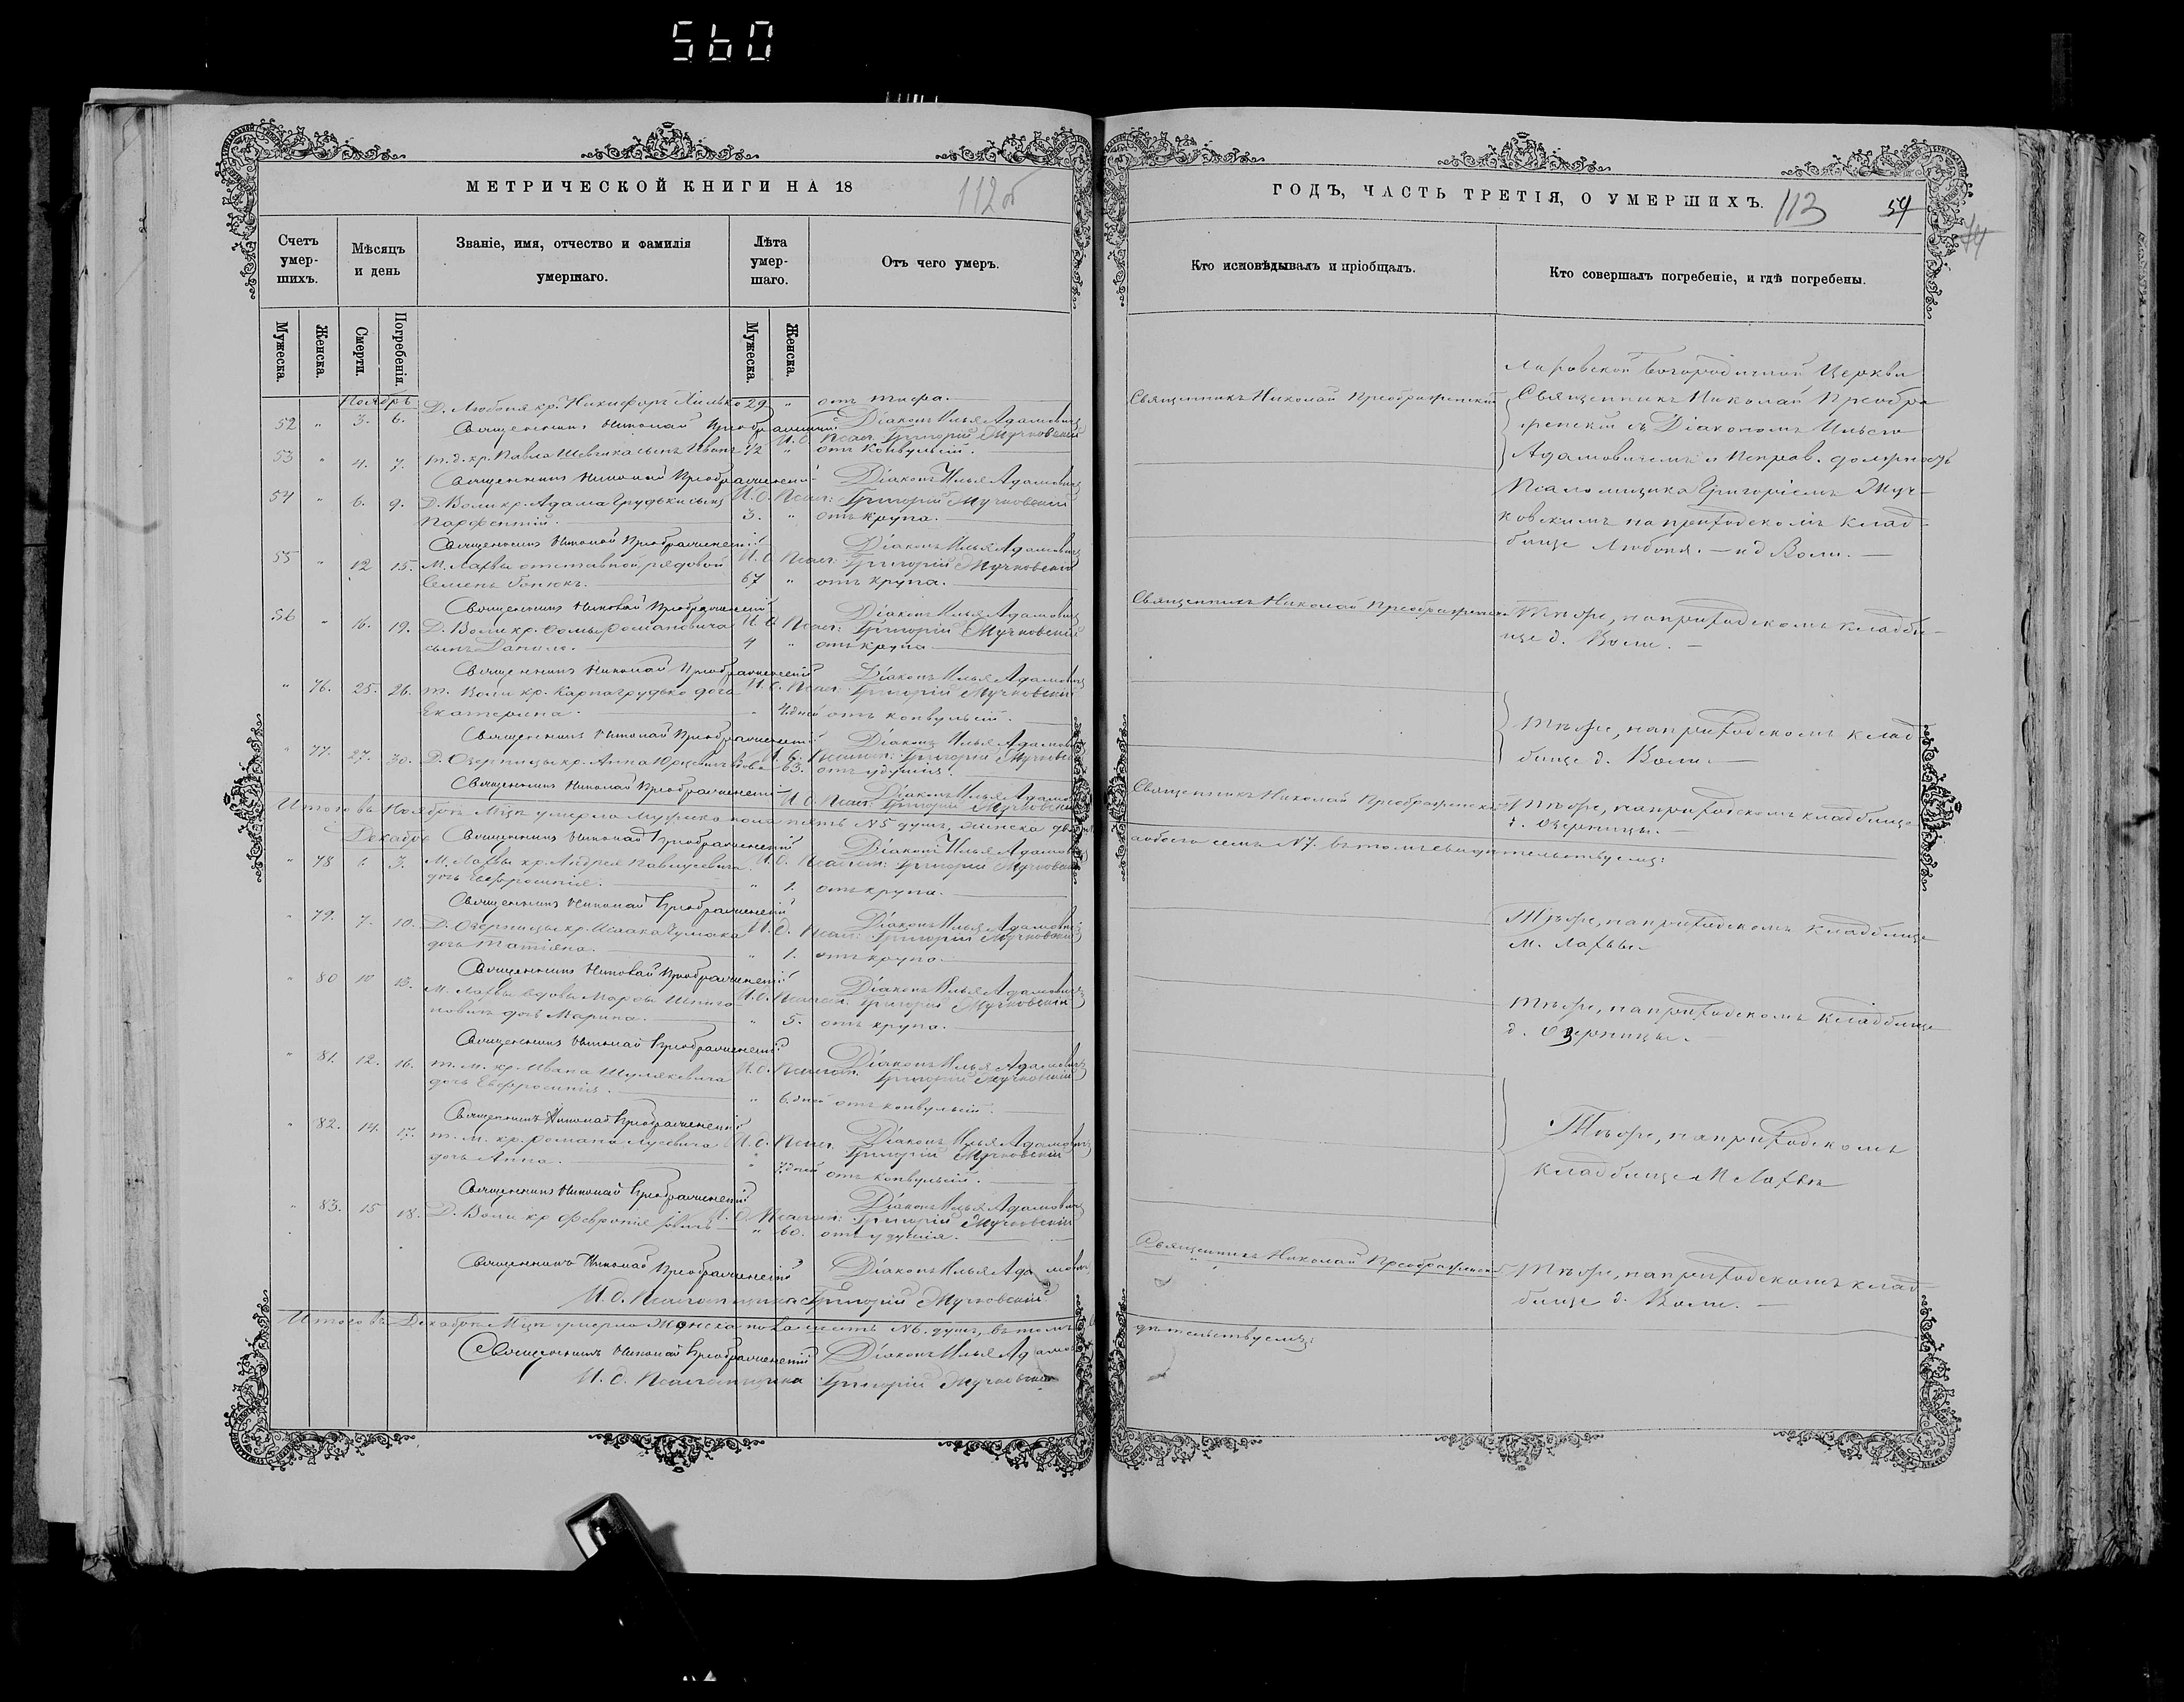 560
МЕТРИЧЕСКОЙ КНИГИ НА 18
112 об
Счетъ умер-шихъ.
Мѣсяцъ и день
Званіе, имя, отчество и фамилія умершаго.
Лѣта умер-шаго.
Отъ чего умеръ.
Мужеска.
Женска.
Смерти.
Погребенія.
Мужеска.
Женска.
Ноябрь
52 " 3. 6. Д. Любоня кр. Никифоръ 29 " отъ тифа.
Священникъ Николай Преображенскій Діаконъ Илья Адамовичъ
И. д. Псал. Григорій Жучковскій
53 " 4. 7. т. д. кр. Павла Шевчика сынъ Иванъ 1/2 " отъ конвульсій.
Священникъ Николай Преображенскій Діаконъ Илья Адамовичъ
54 " 6. 9. Д. Воли кр. Адама Грудьки сынъ И. д. Псал: Григорій Жучковскій
Парфентій. 3. " отъ крупа.
Священникъ Николай Преображенскій Діаконъ Илья Адамовичъ
55 " 12 15. М. Лахвы отставной рядовой И. д. Псал: Григорій Жучковскій
Семенъ 67 " отъ крупа.
Священникъ Николай Преображенскій Діаконъ Илья Адамовичъ
56 " 16. 19. Д. Воли кр. Ѳомы Романовича И. д. Псал: Григорій Жучковскій
сынъ 4 " отъ крупа
Священникъ Николай Преображенскій Діаконъ Илья Адамовичъ
" 76. 25. 26. т. Воли кр. Карпа Грудько дочь И. д. Псал: Григорій Жучковскій
Екатерина. " дней отъ конвульсій.
Священникъ Николай Преображенскій Діаконъ Илья Адамовичъ
" 77. 27. 30. Д. Озерницы кр. Анна вдова И. д. Псалом: Григорій Жучковскій
63. отъ удушія.
Священникъ Николай Преображенскій Діаконъ Илья Адамовичъ
И. д. Псал: Григорій Жучковскій
Итого въ Ноябрѣ Мцѣ умерло мужеска пола пять №5 душъ, женска
Декабрь Священникъ Николай Преображенскій Діаконъ Илья Адамовичъ
" 78 3. М. Лахвы кр. Андрея Павлусевича И. д. Псалом: Григорій Жучковскій
дочь Евфросинія. " 1. отъ крупа.
Священникъ Николай Преображенскій
" 79. 7. 10. Д. Озерницы кр. Исаака Чумака И. д. Псал: Діаконъ Илья Адамовичъ Григорій Жучковскій
дочь Татіяна. " 1. отъ крупа.
Священникъ Николай Преображенскій Діаконъ Илья Адамовичъ
" 80 10 13. М. Лахвы вдовы Марфы И. д. Псалом: Григорій Жучковскій
новичъ дочь Марина. " 5. отъ крупа.
Священникъ Николай Преображенскій Діаконъ Илья Адамовичъ
" 81. 12. 16. т. м. кр. Ивана Шулякевича И. д. Псалом. Григорій Жучковскій
дочь Евфросинія. " 6. дней отъ конвульсій.
Священникъ Николай Преображенскій Діаконъ Илья Адамовичъ
" 82. 14. 17. т. м. кр. Романа Лусевича И. д. Псал. Григорій Жучковскій
дочь Анна. " 7. дней отъ конвульсій.
Священникъ Николай Преображенскій Діаконъ Илья Адамовичъ
" 83. 15 18. Д. Воли кр Февронія И. д. Псалом: Григорій Жучковскій
" 60. отъ удушія.
Священникъ Николай Преображенскій Діаконъ Илья Адамовичъ
И. д. Псаломщика Григорій Жучковскій
Итого въ Декабрѣ Мцѣ умерло Женска пола шесть №6. душъ, въ томъ
Священникъ Николай Преображенскій Діаконъ Илья Адамовичъ
И. д. Псаломщика Григорій Жучковскій
ГОДЪ, ЧАСТЬ ТРЕТІЯ, О УМЕРШИХЪ.
113
Кто исповѣдывалъ и пріобщалъ.
Кто совершалъ погребеніе, и гдѣ погребены.
Священникъ Николай Преображенскій
Богородичной Церкви
Священникъ Николай Преобра
женскій съ Діакономъ Ильею
Адамовичемъ и Исправ. должность
Псаломщика Григоріемъ Жуч-
ковскимъ на приходскомъ клад-
бище Любоня. — и д Воли. —
Священникъ Николай Преображенскій
Тѣ же, на приходскомъ кладби-
ще д. Воли. —
Тѣ же, на приходскомъ клад
бище д. Воли. —
Священникъ Николай Преображенскій
Тѣ же, на приходскомъ кладбище
д. Озерницы. —
а обоего семь №7. въ томъ свидѣтельствуемъ:
Тѣ же, на приходскомъ кладбище
м. Лахвы
Тѣ же, на приходскомъ кладбище
д. Озерницы. —
Тѣ же, на приходскомъ
кладбище М Лахвы
Священникъ Николай Преображенскій
Тѣ же, на приходскомъ клад-
бище д. Воли. —
дѣтельствуемъ: